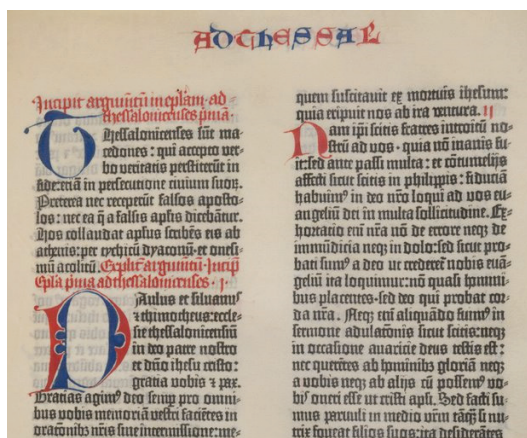 AD THESSAL
Incipit argumētū in eplam ad
thessalonicenses prima.
Thessalonicenses sūt ma-
cedones: qui accepto ver-
bo veritatis perstiterūt in
fide: etiā in persecutione civium suorū.
Preterea nec receperūt falsos aposto-
los: nec ea q̄ a falsis apostolis dicebātur.
Hos collaudat apl̄us scribēs eis ab
athenis: per tychicū dyaconū et onesi-
mū acolitū. Explicit argumētū. Incipit
Epl̄a prima ad thessalonicenses. I
Paulus et siluanus
et thimotheus: eccle-
sie thessalonicensiū
in deo patre nostro
et dn̄o ihesu cristo:
gratia vobis et pax.
Gratias agim⁹ deo semp pro omni-
bus vobis memoriā vestri faciētes in
oratōnib⁹ nr̄is sine intermissione: me-
quem suscitavit ex mortuis ihesum:
quia eripuit nos ab ira ventura. II
Nam ipi scitis fratres introitū no-
strū ad vos: quia nō inanis fu-
it: sed ante passi multa: et cōtumelijs
affecti sicut scitis in philippis: fiduciā
habuim⁹ in deo nr̄o loqui ad vos eu-
angeliū dei in multa sollicitudine. Ex-
hortatio eni nr̄a nō de errore neq; de
immūdicia neq; in dolo: sed sicut pro-
bati sum⁹ a deo ut crederet᷑ nobis euā-
geliū ita loquimur: nō quasi homini-
bus placentes: sed deo qui probat cor-
da nr̄a. Neq; eni aliquādo fuim⁹ in
sermone adulatōnis sicut scitis: neq;
in occasione avaricie deus testis est:
nec querētes ab hominib⁹ gloriā neq;
a vobis neq; ab alijs cū possem⁹ vo-
bis oneri esse ut cristi apl̄i. Sed facti su-
mus parvuli in medio vr̄m tāq̄ si nu-
trix foveat filios suos: ita desiderātes